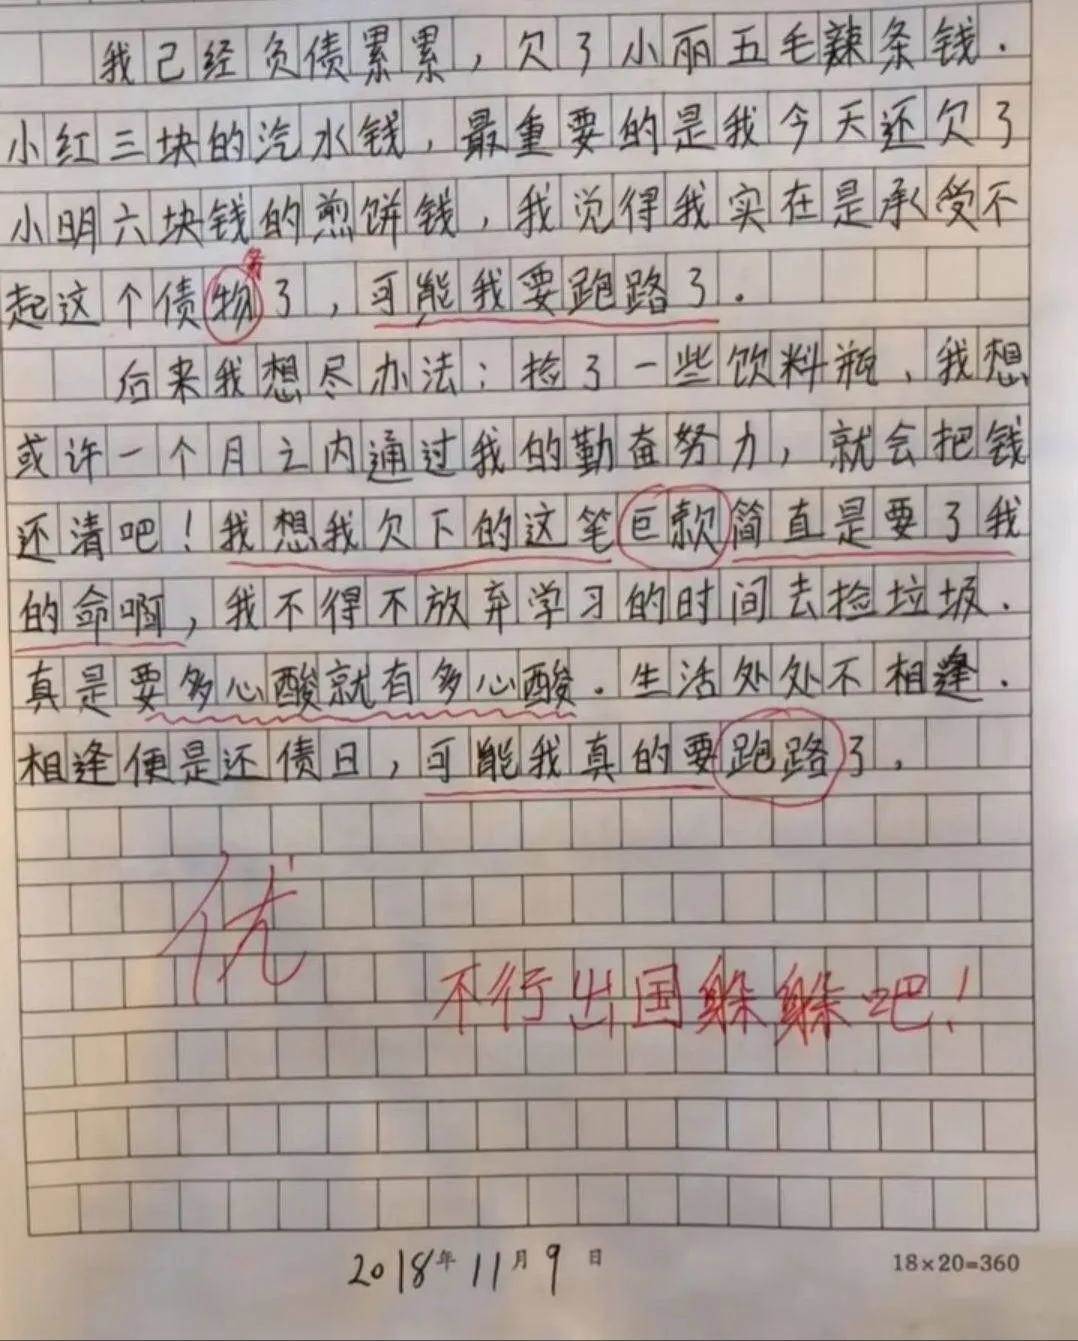 我已经负债累累，欠了小丽五毛辣条钱.
小红三块的汽水钱，最重要的是我今天还欠了
小明六块钱的煎饼钱，我觉得我实在是承受不
务
起这个债物了，可能我要跑路了.
后来我想尽办法：捡了一些饮料瓶、我想
或许一个月之内通过我的勤奋努力，就会把钱
还清吧！我想我欠下的这笔巨款简直是要了我
的命啊，我不得不放弃学习的时间去捡垃圾.
真是要多心酸就有多心酸.生活处处不相逢.
相逢便是还债日，可能我真的要跑路了.
优
不行出国躲躲吧！
2018年11月9日
18×20=360